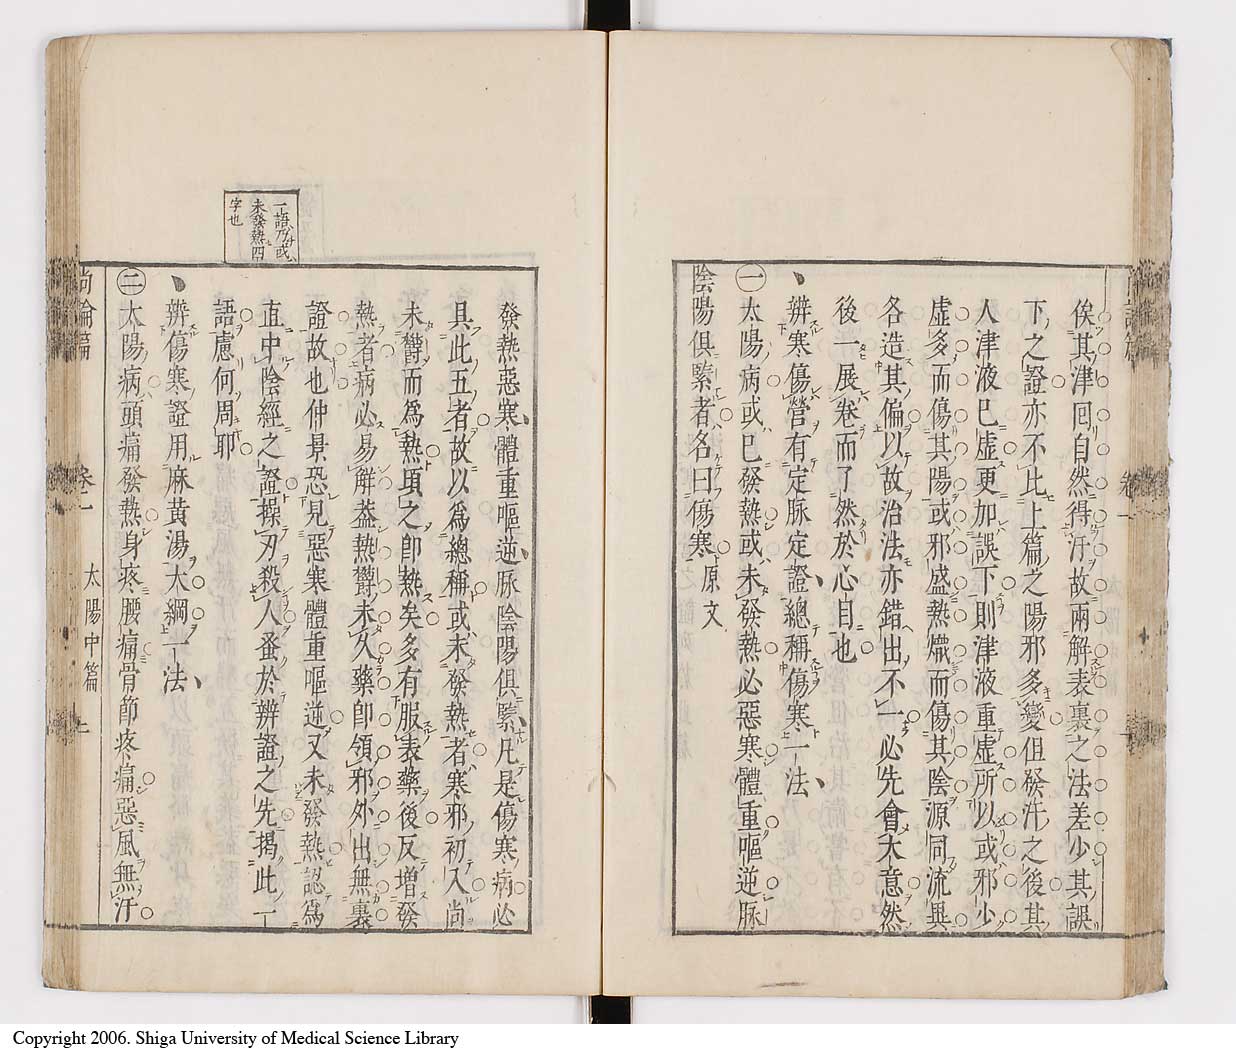 俟其津回自然得汗故兩解表裏之法差少其誤
下之證亦不比上篇之陽邪多變但發汗之後其
人津液已虛更加誤下則津液重虛所以或邪少
虛多而傷其陽或邪盛熱熾而傷其陰源同流異
各造其偏以故治法亦錯出不一必先會大意然
後一展卷而了然於心目也
辨寒傷營有定脉定證總稱傷寒一法
㊀太陽病或已發熱或未發熱必惡寒體重嘔逆脉
陰陽俱緊者名曰傷寒 原文
發熱惡寒體重嘔逆脉陰陽俱緊凡是傷寒病必
具此五者故以爲總稱或未發熱者寒邪初入尚
未欝而爲熱頃之卽熱矣多有服表藥後反增發
熱者病必易解葢熱欝未久藥卽領邪外出無裏
證故也仲景恐見惡寒體重嘔逆又未發熱認爲
直中陰經之證操刃殺人蚤於辨證之先揭此一
語慮何周耶
一語乃或
未發熱四
字也
辨傷寒證用麻黃湯大綱一法
㊁太陽病頭痛發熱身疼腰痛骨節疼痛惡風無汗
尚論篇 卷一 太陽中篇 上
Copyright 2006. Shiga University of Medical Science Library